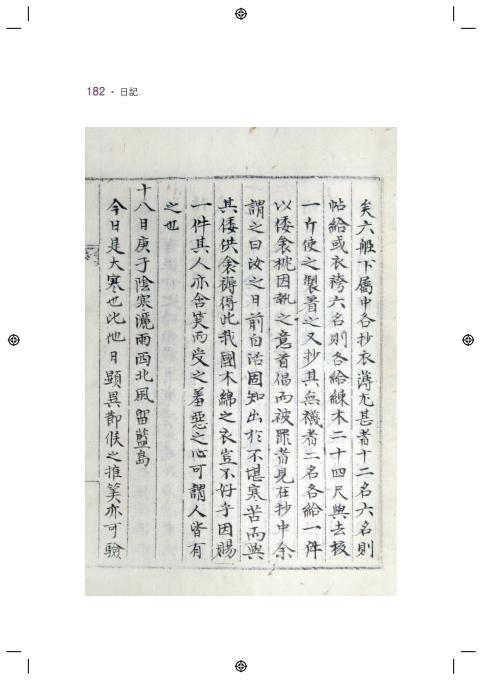 182 • 日記
矣六船下屬中各抄衣薄尤甚者十二名六名則
帖給或衣袴六名則各給練木二十四尺與去核
一斤使之製着之又抄其無襪者二名各給一件
以倭衾枕因執之意首倡而被罪者見在抄中余
謂之曰汝之日前白活固知出於不堪寒苦而與
其倭供衾褥得此我國木綿之衣豈不好乎因賜
一件其人亦含笑而受之羞惡之心可謂人皆有
之也
十八日庚子陰寒灑雨西北風留藍島
今日是大寒也比他月顯異節候之推筭亦可驗